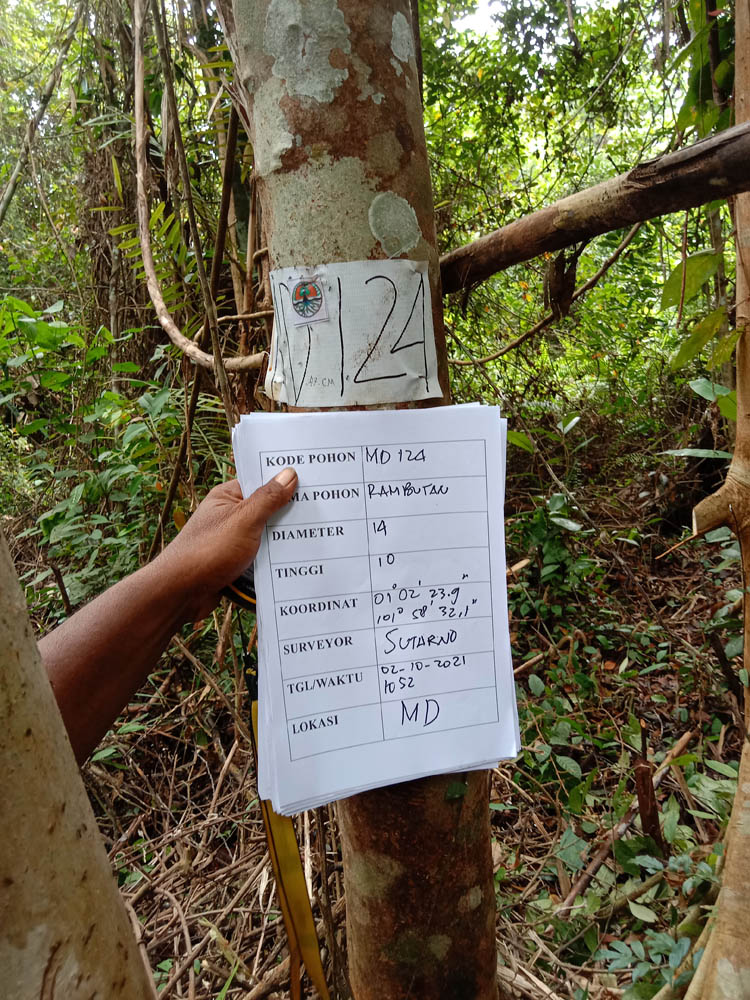 124
AP.CM
KODE POHON MD 124
MA POHON RAMBUTAN
DIAMETER 14
TINGGI 10
KOORDINAT 01° 02' 23.9"
101° 58' 32,1"
SURVEYOR SUTARNO
TGL/WAKTU 02-10-2021
1052
LOKASI MD